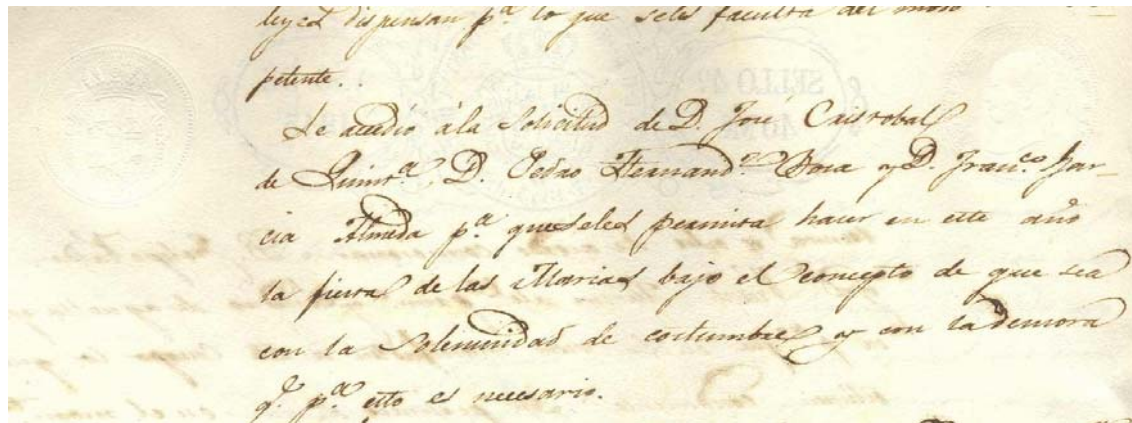 leyes dispensan pª. lo que seles faculta del modo
petente.
Se acedio ála Solicitud de D. José Cristobal
de Quintª. D. Pedro Hernandz. Bora y D. Franco. Gar-
cia Almeda pª. queseles permita hacer en este año
la fiesta de las Marias bajo el concepto de que sea
con la Solemnidad de costumbre y con la demora
q. pª. esto es necesario.
SELLO 4º.
40 MS.